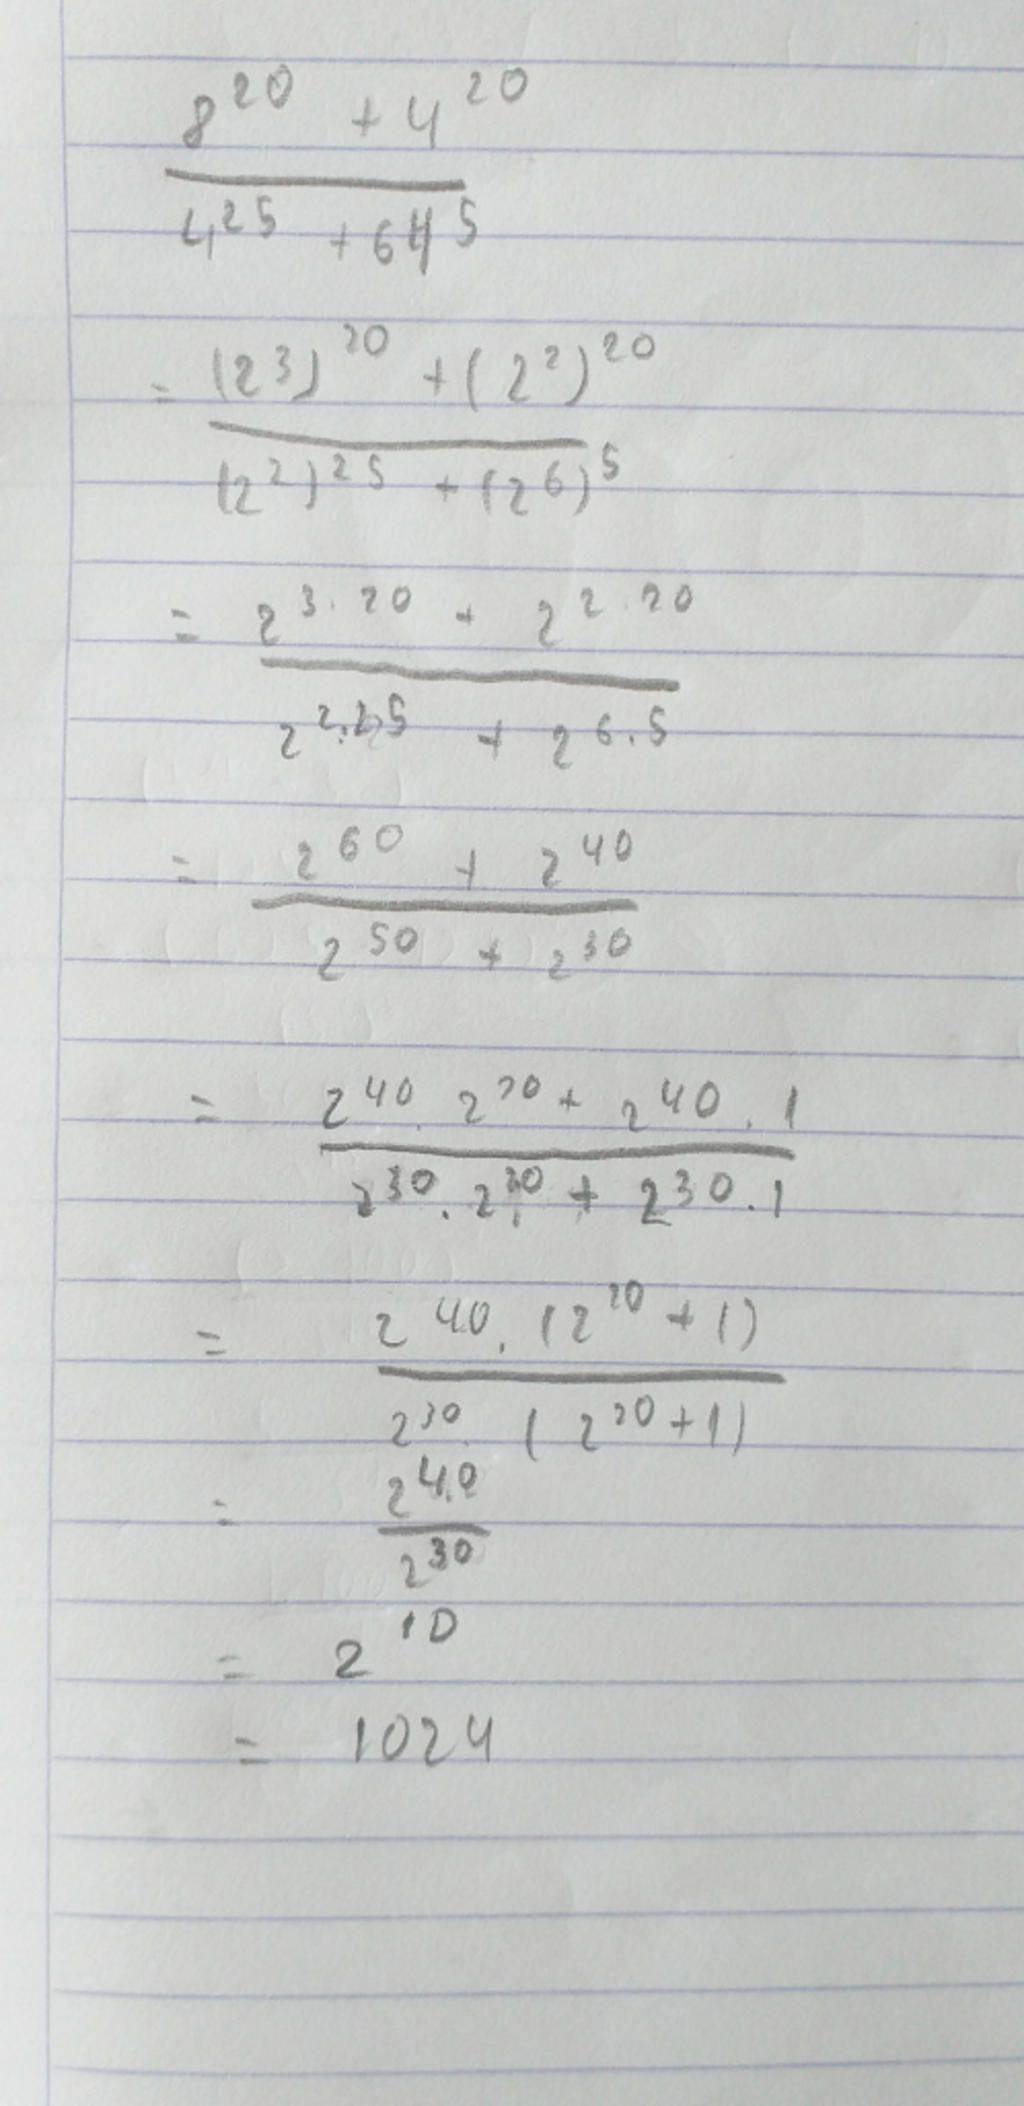 8^20 + 4^20
4^25 + 64^5
= (2^3)^20 + (2^2)^20
(2^2)^25 + (2^6)^5
= 2^3.20 + 2^2.20
2^2.25 + 2^6.5
= 2^60 + 2^40
2^50 + 2^30
= 2^40 . 2^20 + 2^40 . 1
2^30 . 2^30 + 2^30 . 1
= 2^40 . (2^20 + 1)
2^30 . (2^20 + 1)
= 2^40
2^30
= 2^10
= 1024